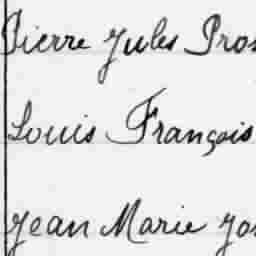 Pierre Jules Pros
Louis François
Jean Marie Jos